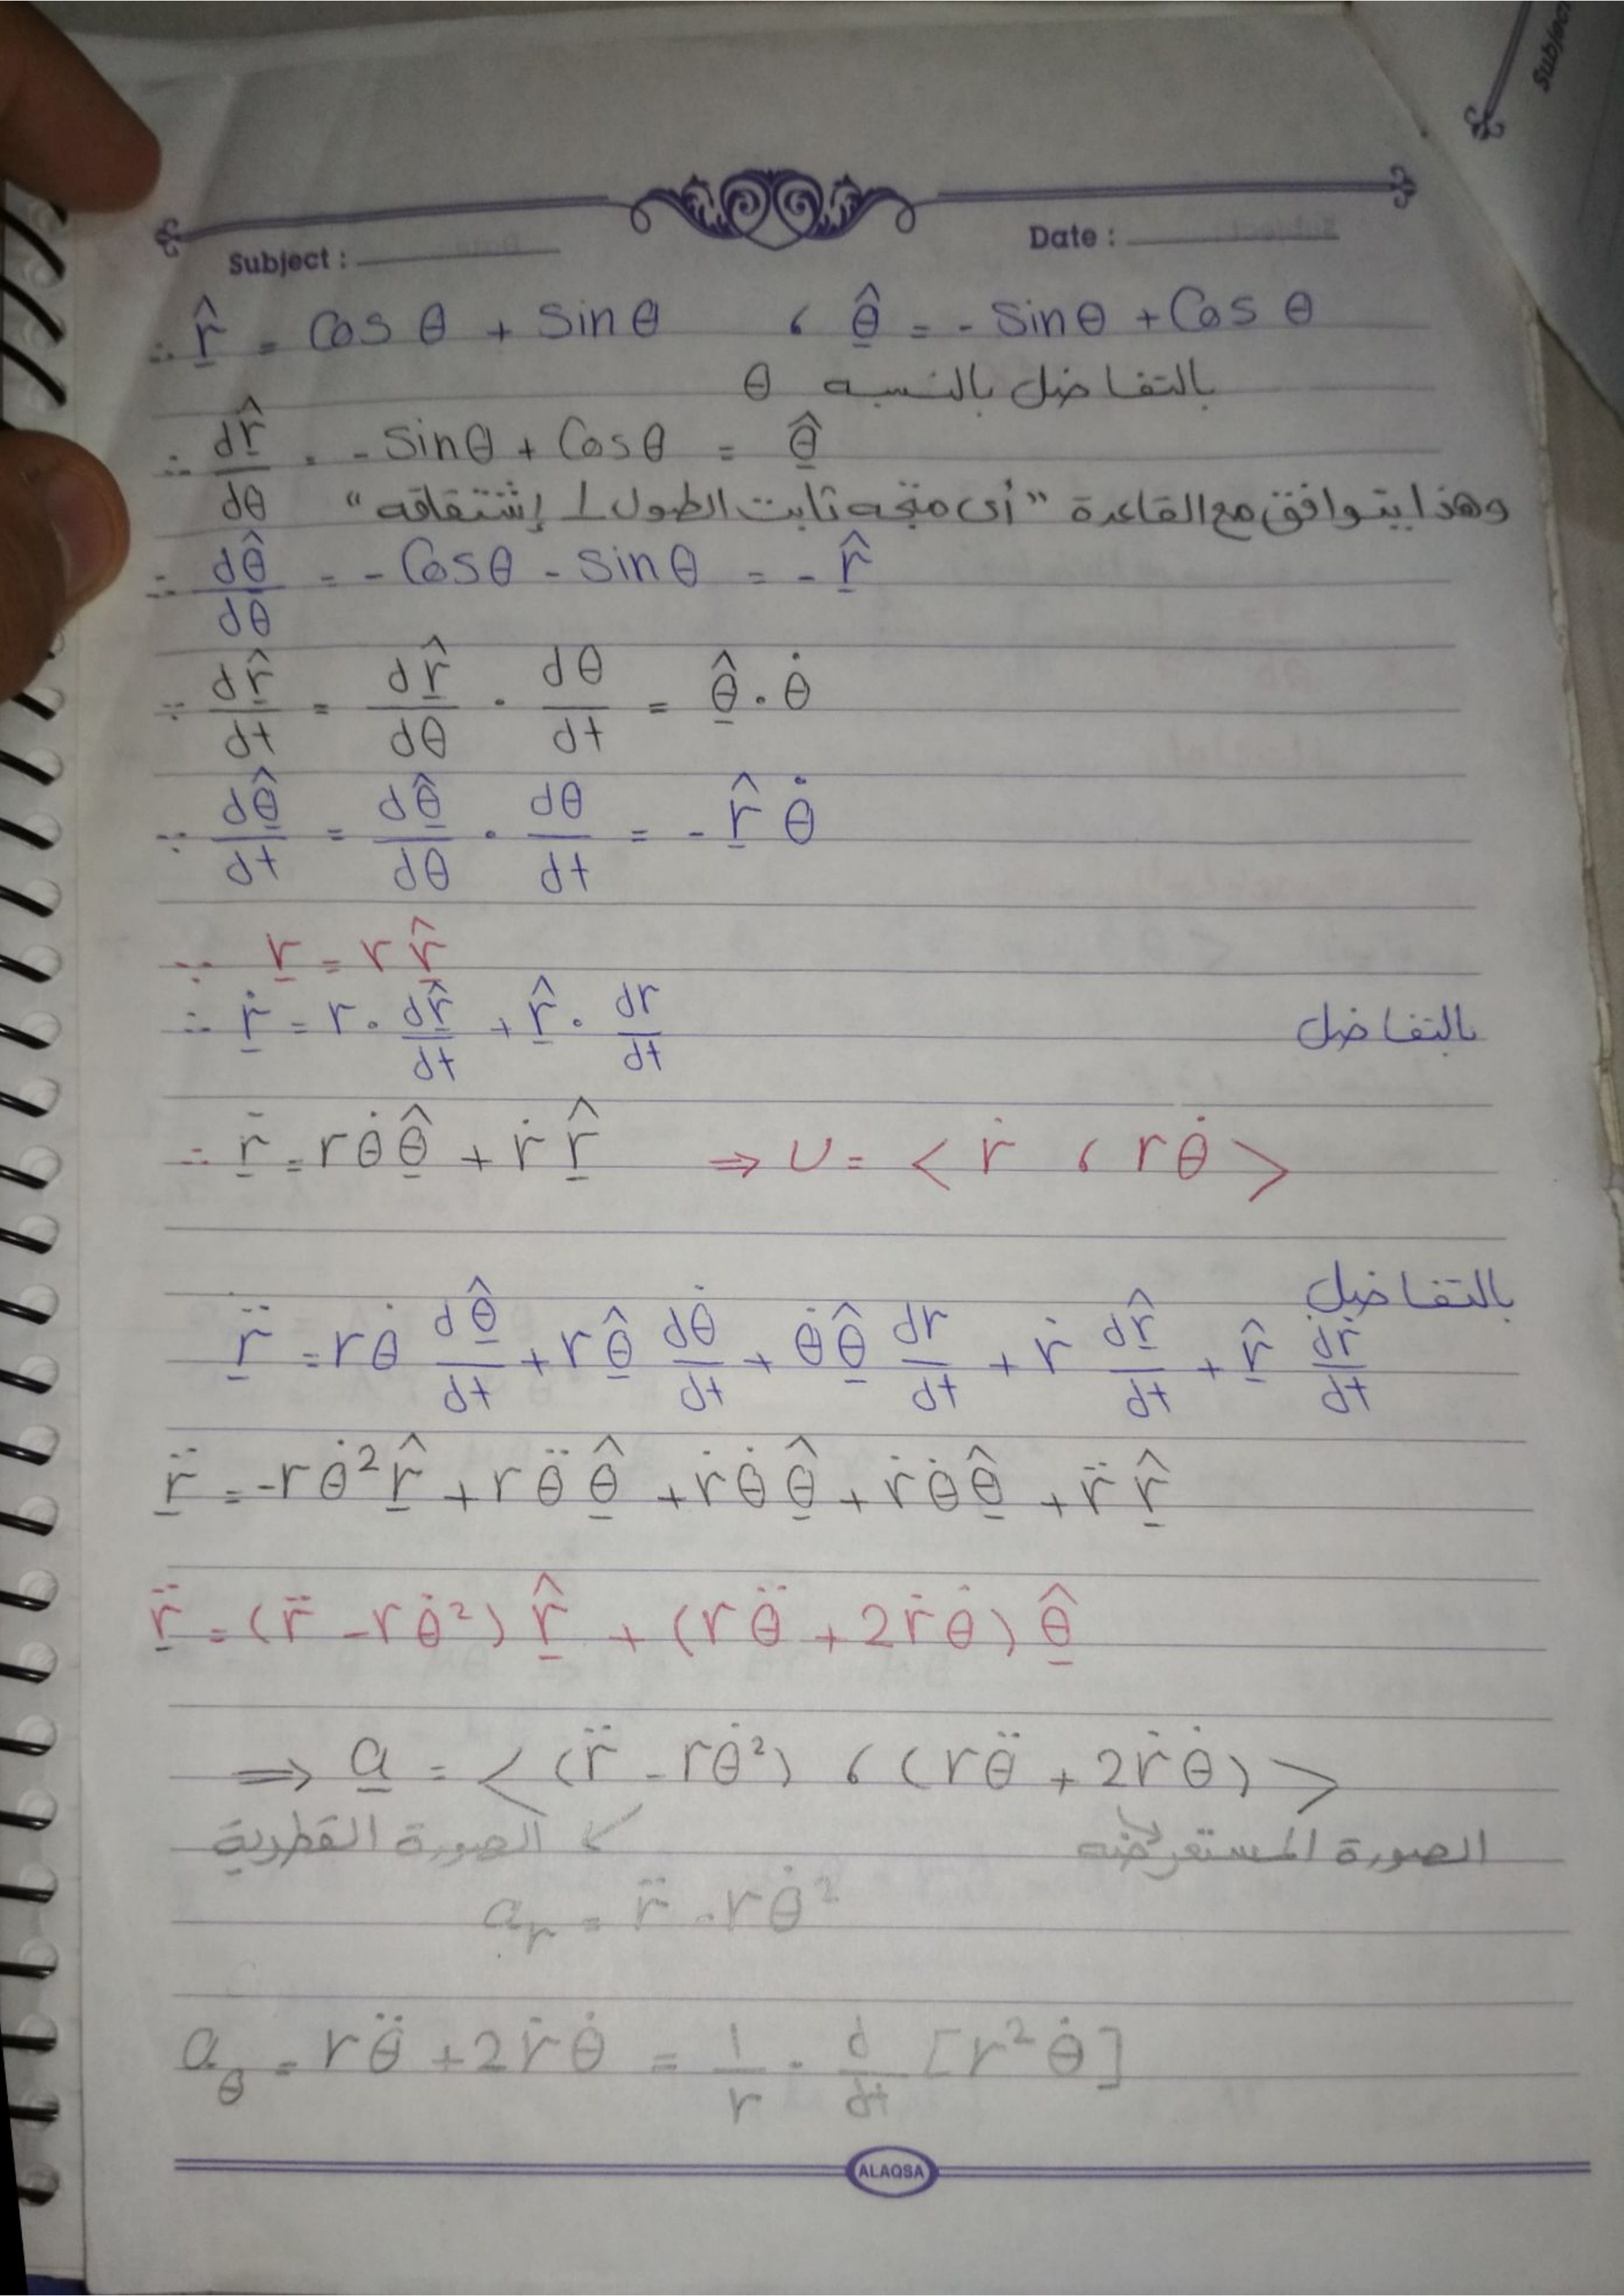 Subject
Subject : Date :
∴ r̂ = Cos θ + Sin θ ، θ̂ = - Sin θ + Cos θ
بالتفاضل بالنسبه θ
∴ dr̂/dθ = - Sin θ + Cos θ = θ̂
وهذا يتوافق مع القاعدة "أى متجه ثابت الطول ⊥ إشتقاقه"
∴ dθ̂/dθ = - Cos θ - Sin θ = - r̂
∵ dr̂/dt = dr̂/dθ · dθ/dt = θ̂ · θ̇
∵ dθ̂/dt = dθ̂/dθ · dθ/dt = - r̂ θ̇
∵ r̲ = r r̂
∴ ṙ̲ = r · dr̂/dt + r̂ · dr/dt بالتفاضل
∴ ṙ̲ = r θ̇ θ̂ + ṙ r̂ ⇒ υ = < ṙ ، r θ̇ >
بالتفاضل
r̲̈ = r θ̇ dθ̂/dt + r θ̂ dθ̇/dt + θ̇ θ̂ dr/dt + ṙ dr̂/dt + r̂ dṙ/dt
r̲̈ = - r θ̇² r̂ + r θ̈ θ̂ + ṙ θ̇ θ̂ + ṙ θ̇ θ̂ + r̈ r̂
r̲̈ = ( r̈ - r θ̇² ) r̂ + ( r θ̈ + 2 ṙ θ̇ ) θ̂
⇒ a̲ = < ( r̈ - r θ̇² ) ، ( r θ̈ + 2 ṙ θ̇ ) >
الصورة القطرية ↙ الصورة المستعرضه ↘
a_r = r̈ - r θ̇²
a_θ = r θ̈ + 2 ṙ θ̇ = 1/r · d/dt [ r² θ̇ ]
ALAQSA